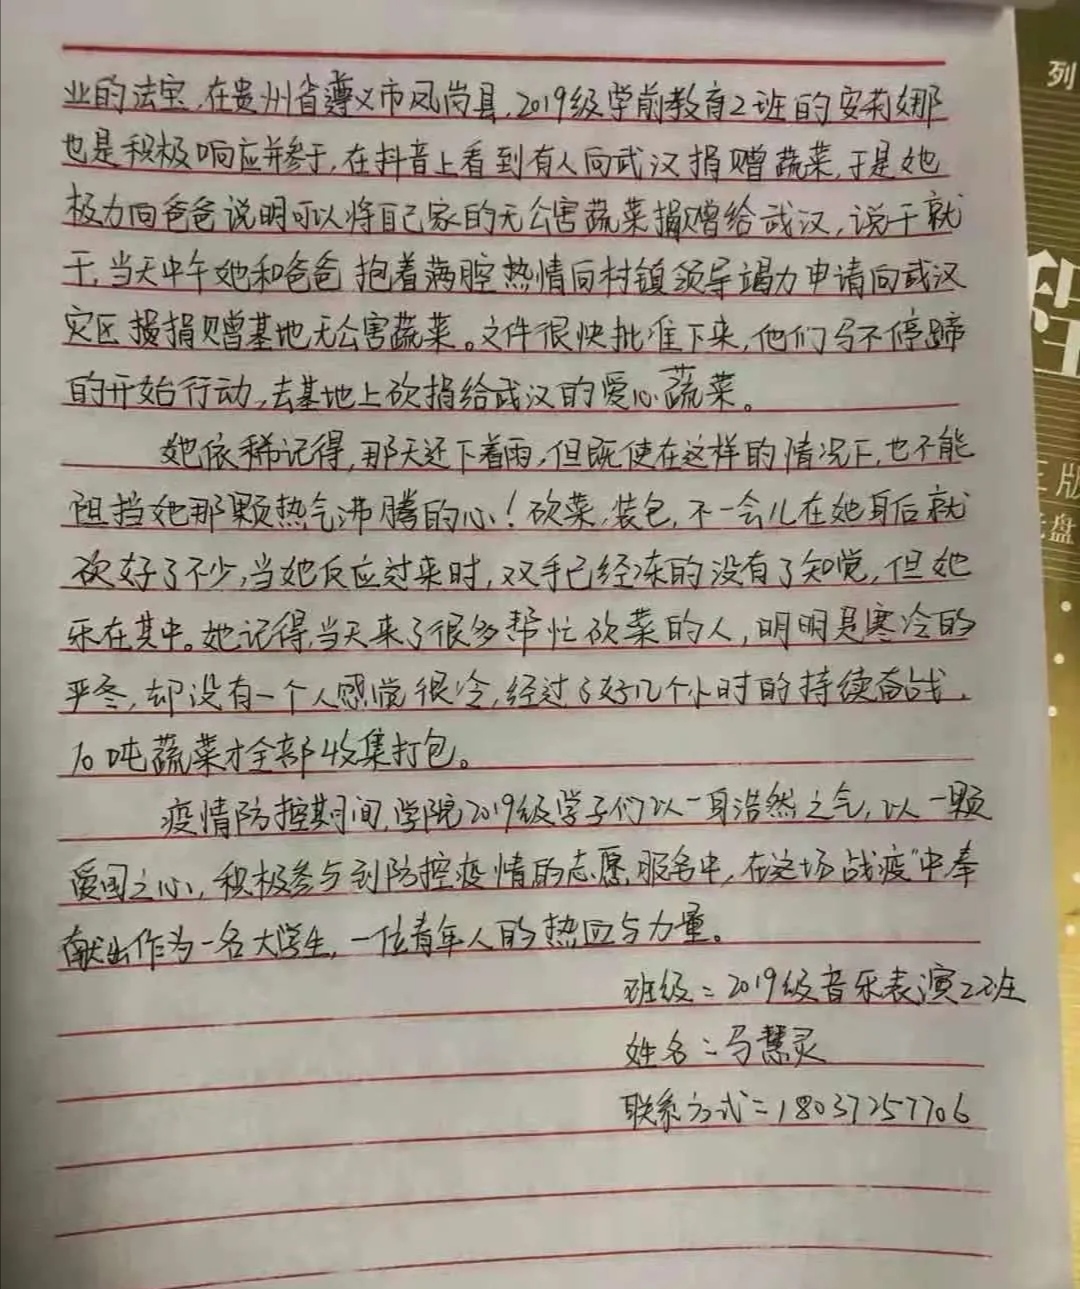 业的法宝,在贵州省遵义市凤岗县,2019级学前教育2班的安莉娜
也是积极响应并参于,在抖音上看到有人向武汉捐赠蔬菜,于是她
极力向爸爸说明可以将自己家的无公害蔬菜捐赠给武汉,说干就
干,当天中午她和爸爸抱着满腔热情向村镇领导竭力申请向武汉
灾区援捐赠基地无公害蔬菜。文件很快批准下来,他们马不停蹄
的开始行动,去基地上砍捐给武汉的爱心蔬菜。
她依稀记得,那天还下着雨,但既使在这样的情况下,也不能
阻挡她那颗热气沸腾的心!砍菜,装包,不一会儿在她身后就
砍好了不少,当她反应过来时,双手已经冻的没有了知觉,但她
乐在其中。她记得,当天来了很多帮忙砍菜的人,明明是寒冷的
严冬,却没有一个人感觉很冷,经过了好几个小时的持续奋战,
10吨蔬菜才全部收集打包。
疫情防控期间,学院2019级学子们以一身浩然之气,以一颗
爱国之心,积极参与到防控疫情的志愿服务中,在这场战疫"中奉
献出作为一名大学生,一位青年人的热血与力量。
班级:2019级音乐表演2班
姓名:马慧灵
联系方式:18037257706
列
程
三版
光盘